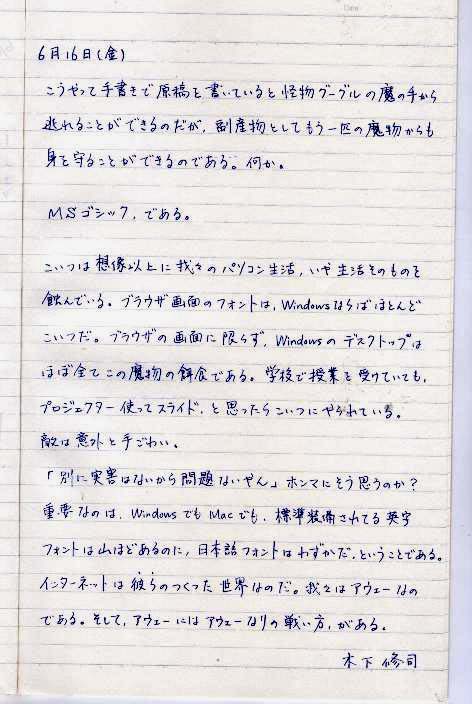 6月16日(金)
こうやって手書きで原稿を書いていると怪物グーグルの魔の手から
逃れることができるのだが、副産物としてもう一匹の魔物からも
身を守ることができるのである。何か。
MSゴシック、である。
こいつは想像以上に我々のパソコン生活、いや生活そのものを
蝕んでいる。ブラウザ画面のフォントは、Windowsならばほとんど
こいつだ。ブラウザの画面に限らず、Windowsのデスクトップは
ほぼ全てこの魔物の餌食である。学校で授業を受けていても、
プロジェクター使ってスライド、と思ったらこいつにやられている。
敵は意外と手ごわい。
「別に実害はないから問題ないやん」ホンマにそう思うのか?
重要なのは、WindowsでもMacでも、標準装備されてる英字
フォントは山ほどあるのに、日本語フォントはわずかだ、ということである。
インターネットは彼らのつくった世界なのだ。我々はアウェーなの
である。そして、アウェーにはアウェーなりの戦い方、がある。
木下修司